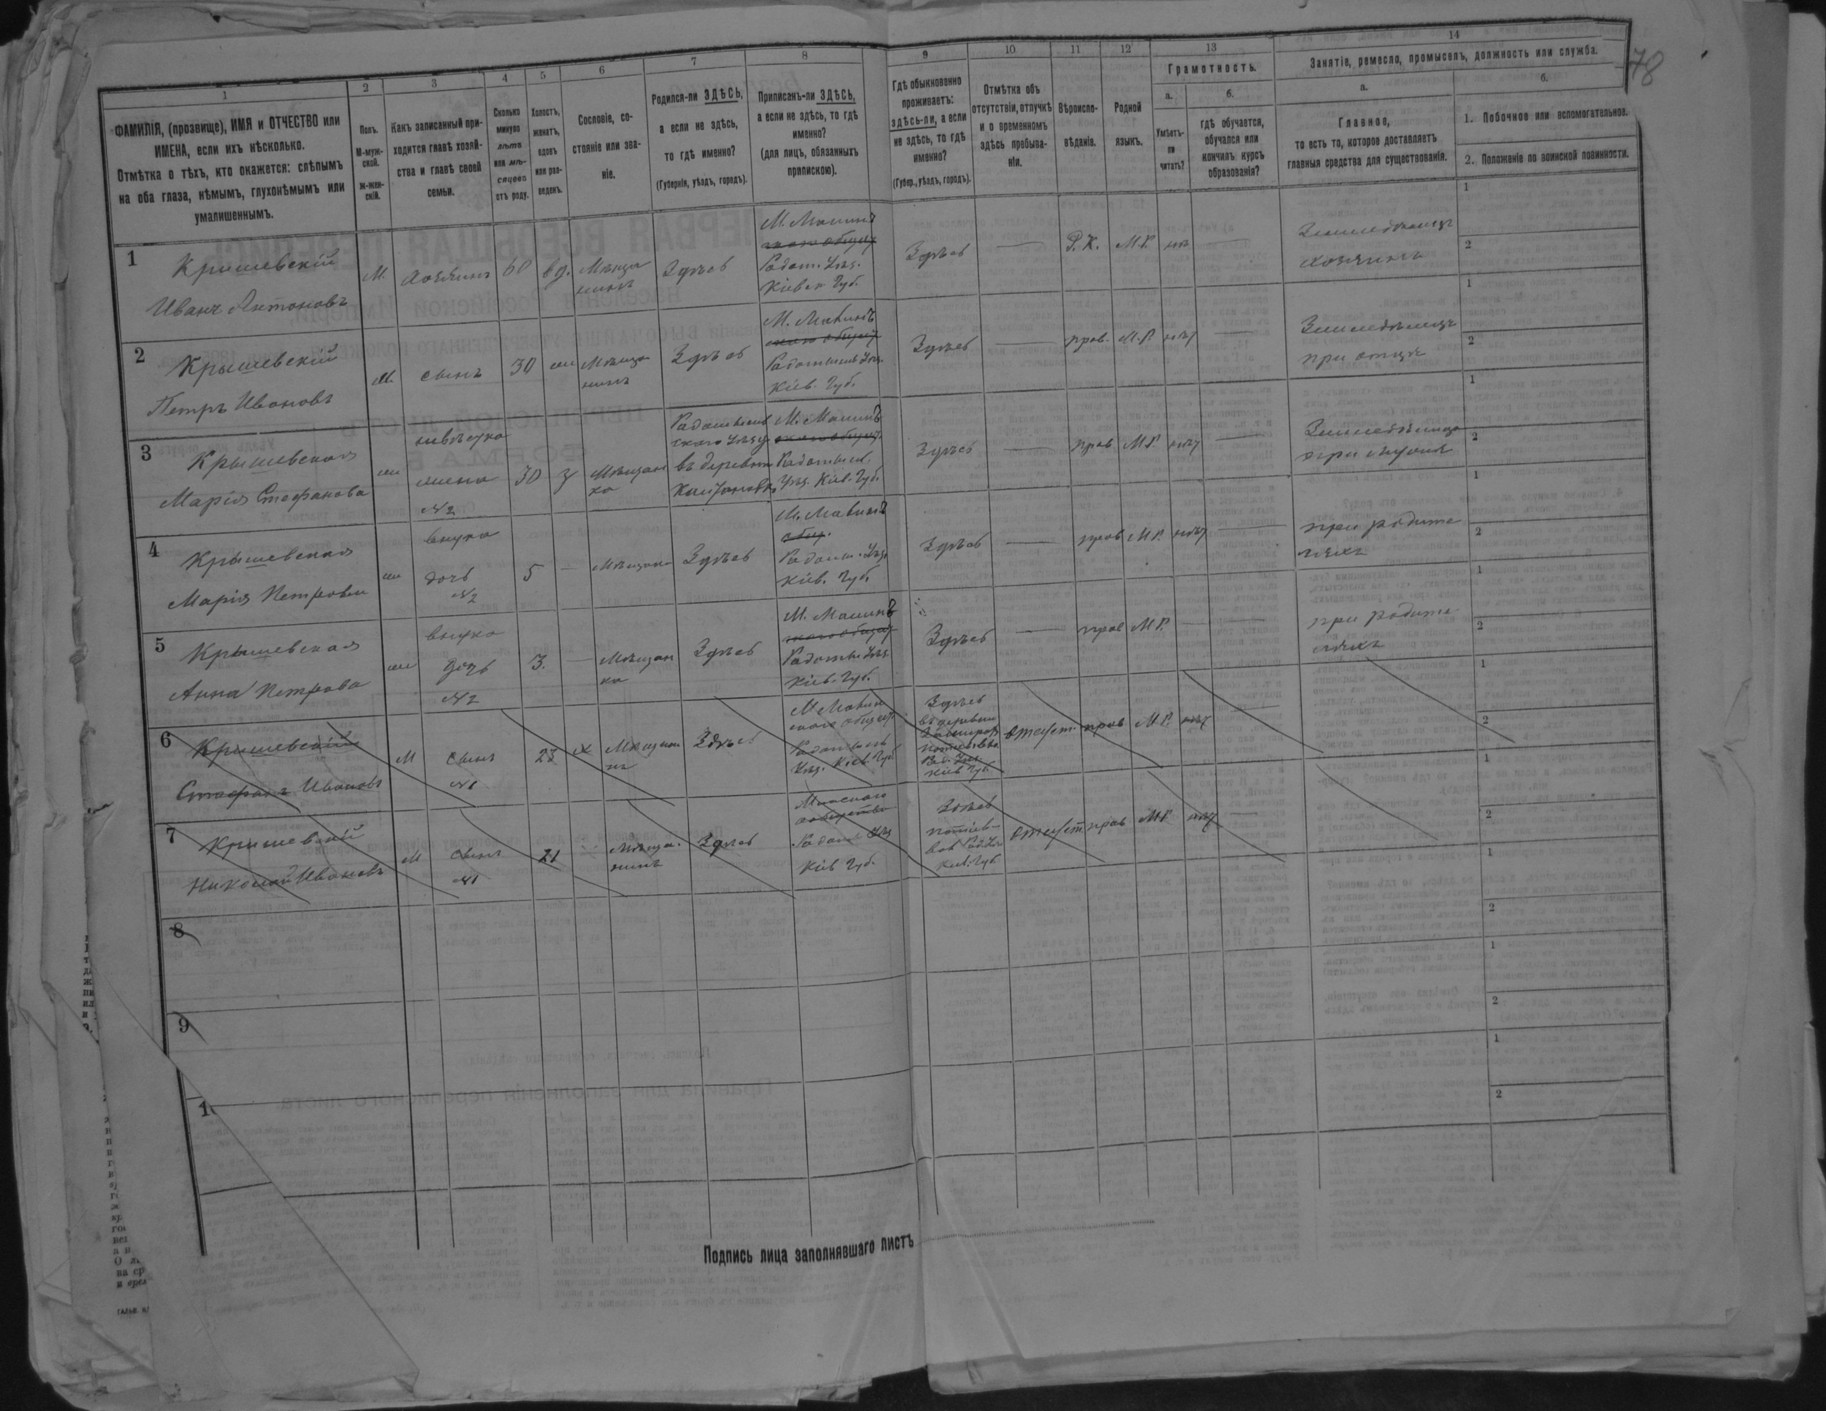 78
1
2
3
4
5
6
7
8
9
10
11
12
13
14
ФАМИЛІЯ, (прозвище), ИМЯ и ОТЧЕСТВО или
ИМЕНА, если ихъ нѣсколько.
Отмѣтка о тѣхъ, кто окажется: слѣпымъ
на оба глаза, нѣмымъ, глухонѣмымъ или
умалишеннымъ.
Полъ.
М-муж-
ской.
Ж-жен-
скій.
Какъ записанный при-
ходится главѣ хозяй-
ства и главѣ своей
семьи.
Сколько
минуло
лѣтъ
или мѣ-
сяцевъ
отъ роду.
Холостъ,
женатъ,
вдовъ
или раз-
веденъ.
Сословіе, со-
стояніе или зва-
ніе.
Родился-ли ЗДѢСЬ,
а если не здѣсь,
то гдѣ именно?
(Губернія, уѣздъ, городъ).
Приписанъ-ли ЗДѢСЬ,
а если не здѣсь, то гдѣ
именно?
(для лицъ, обязанныхъ
припискою).
Гдѣ обыкновенно
проживаетъ:
здѣсь-ли, а если
не здѣсь, то гдѣ
именно?
(Губер., уѣздъ, городъ).
Отмѣтка объ
отсутствіи, отлучкѣ
и о временномъ
здѣсь пребыва-
ніи.
Вѣроиспо-
вѣданіе.
Родной
языкъ.
Грамотность.
а.
Умѣетъ-
ли
читать?
б.
гдѣ обучается,
обучался или
кончилъ курсъ
образованія?
Занятіе, ремесло, промыселъ, должность или служба.
а.
Главное,
то есть то, которое доставляетъ
главныя средства для существованія.
б.
1. Побочное или вспомогательное.
2. Положеніе по воинской повинности.
1
Крышевскій
Иванъ Антоновъ
М.
хозяинъ
60
вд.
Мѣща
нинъ
Здѣсь
М. Малинъ
скаго общез
Радом. Уѣз.
Кіевск Губ.
Здѣсь
Р. К.
М.Р.
нѣт
Земледѣлецъ
хозяинъ
1
2
2
Крышевскій
Петръ Ивановъ
М.
сынъ
30
жн
Мѣща
нинъ
Здѣсь
М. Малинъ
скаго общез
Радомысль Уѣз.
Кіев. Губ.
Здѣсь
прав.
М.Р.
нѣт
Земледѣлецъ
при отцѣ
1
2
3
Крышевская
Марія Стефанова
ж
невѣстка
жена
№2
30
з
Мѣщан
ка
Радомысль
скаго Уѣзд
въ деревни
М. Малинъ
скаго общез.
Радомысл.
Уѣз. Кіев. Губ.
Здѣсь
прав
М.Р.
нѣт
Земледѣлица
при мужѣ
1
2
4
Крышевская
Марія Петровна
ж
внука
дочь
№2
5
Мѣщанка
Здѣсь
М. Малинъ
общ.
Радом. Уѣз.
Кіев. Губ.
Здѣсь
прав
М.Р.
нѣт
при родите
ляхъ
1
2
5
Крышевская
Анна Петрова
ж
внука
дочь
№2
3.
Мѣщан
ка
Здѣсь
М. Малинъ
скаго общез
Радомы Уѣз
Кіев. Губ.
Здѣсь
прав
М.Р.
при родите
ляхъ
1
2
6
Крышевскій
Стефанъ Ивановъ
М
сынъ
№1
23
х
Мѣщани
нъ
Здѣсь
М Малин
скаго общез
Радомысль
Уѣз. Кіев Губ
Здѣсь
въ деревни
Кіев Губ.
отсутст
прав
М.Р.
нѣт
1
2
7
Крышевскій
Николай Ивановъ
М
сынъ
№1
21
Мѣща-
нинъ
Здѣсь
Радом Уѣз
Кіев Губ.
Здѣсь
Кіев. Губ
отсутст
прав
М.Р.
нѣт
1
2
8
1
2
9
1
2
1
1
2
Подпись лица заполнявшаго листъ